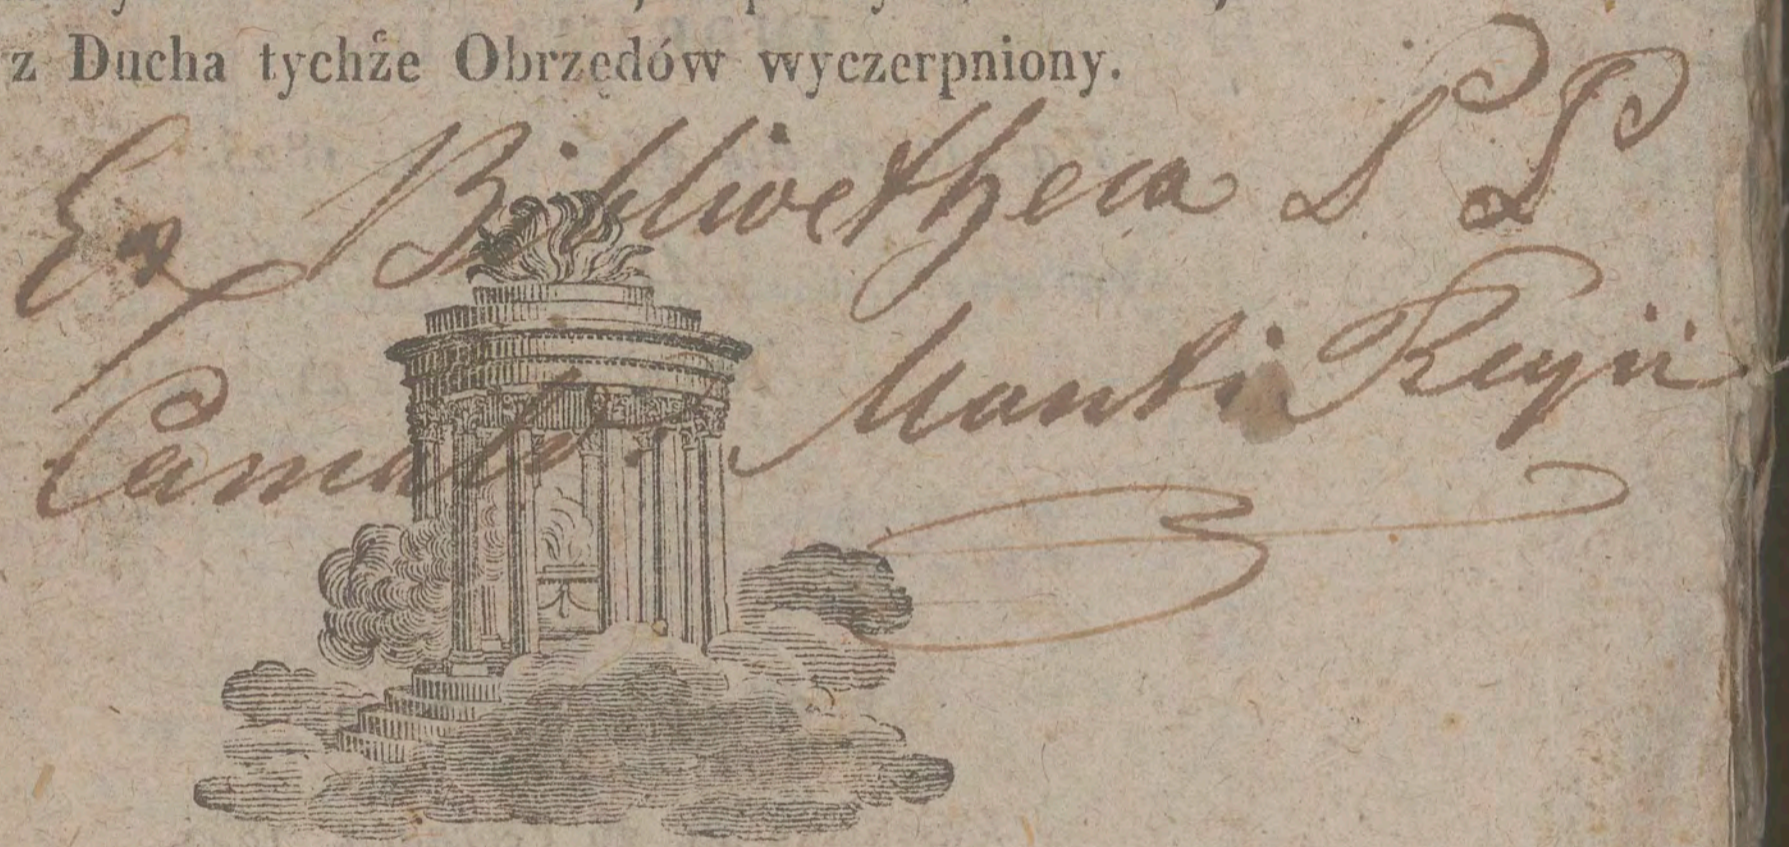 z Ducha tychże Obrzędów wyczerpniony.
Ex Bibliotheca P P
Camald: Montis Regii